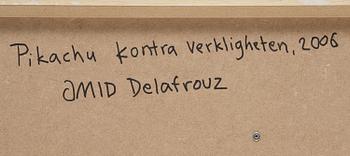 Pikachu kontra verkligheten, 2006
OMID Delafrouz